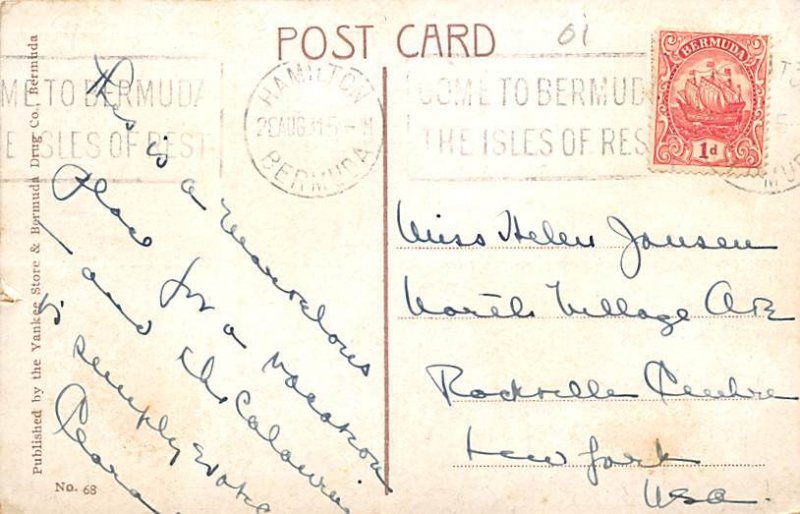 POST CARD
01
COME TO BERMUDA
THE ISLES OF REST
HAMILTON
AUG 31 5 - M
BERMUDA
COME TO BERMUDA
THE ISLES OF REST
BERMUDA
1d
This is a marvelous
place for a vacation
and the coloring
is simply
Clara
Miss Helen Jansen
North Village Ave
Rockville Centre
New York
USA
Published by the Yankee Store & Bermuda Drug Co., Bermuda
No. 68